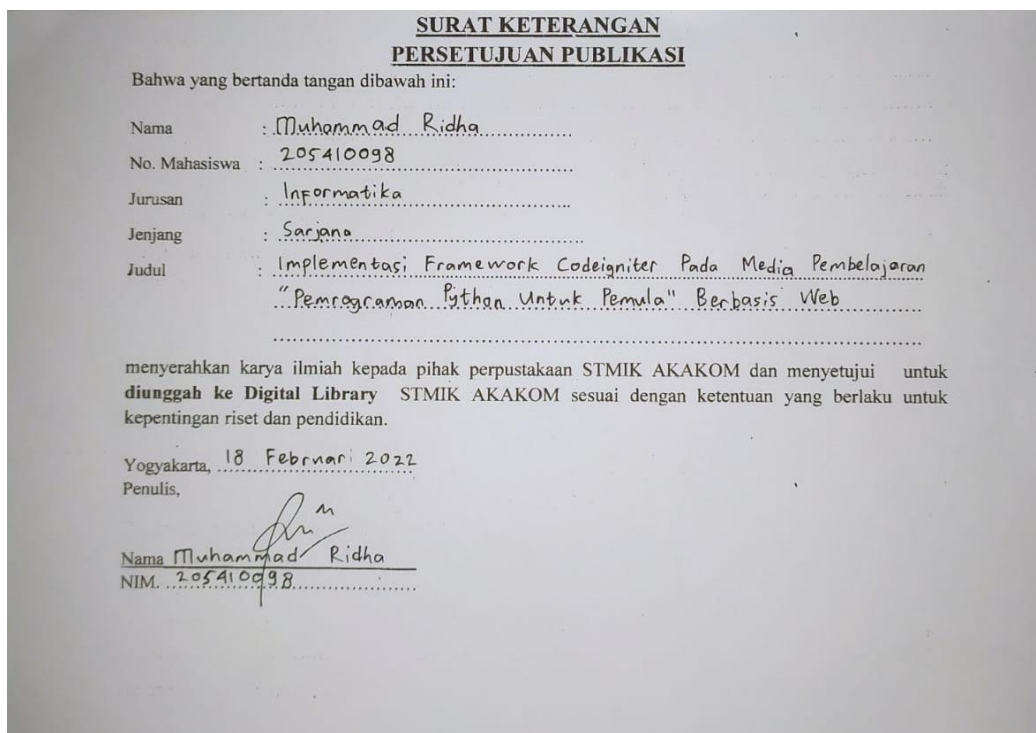 SURAT KETERANGAN
PERSETUJUAN PUBLIKASI
Bahwa yang bertanda tangan dibawah ini:
Nama : Muhammad Ridha
No. Mahasiswa : 205410098
Jurusan : Informatika
Jenjang : Sarjana
Judul : Implementasi Framework Codeigniter Pada Media Pembelajaran
"Pemrograman Python Untuk Pemula" Berbasis Web
menyerahkan karya ilmiah kepada pihak perpustakaan STMIK AKAKOM dan menyetujui untuk
diunggah ke Digital Library STMIK AKAKOM sesuai dengan ketentuan yang berlaku untuk
kepentingan riset dan pendidikan.
Yogyakarta, 18 Februari 2022
Penulis,
Nama Muhammad Ridha
NIM. 205410098